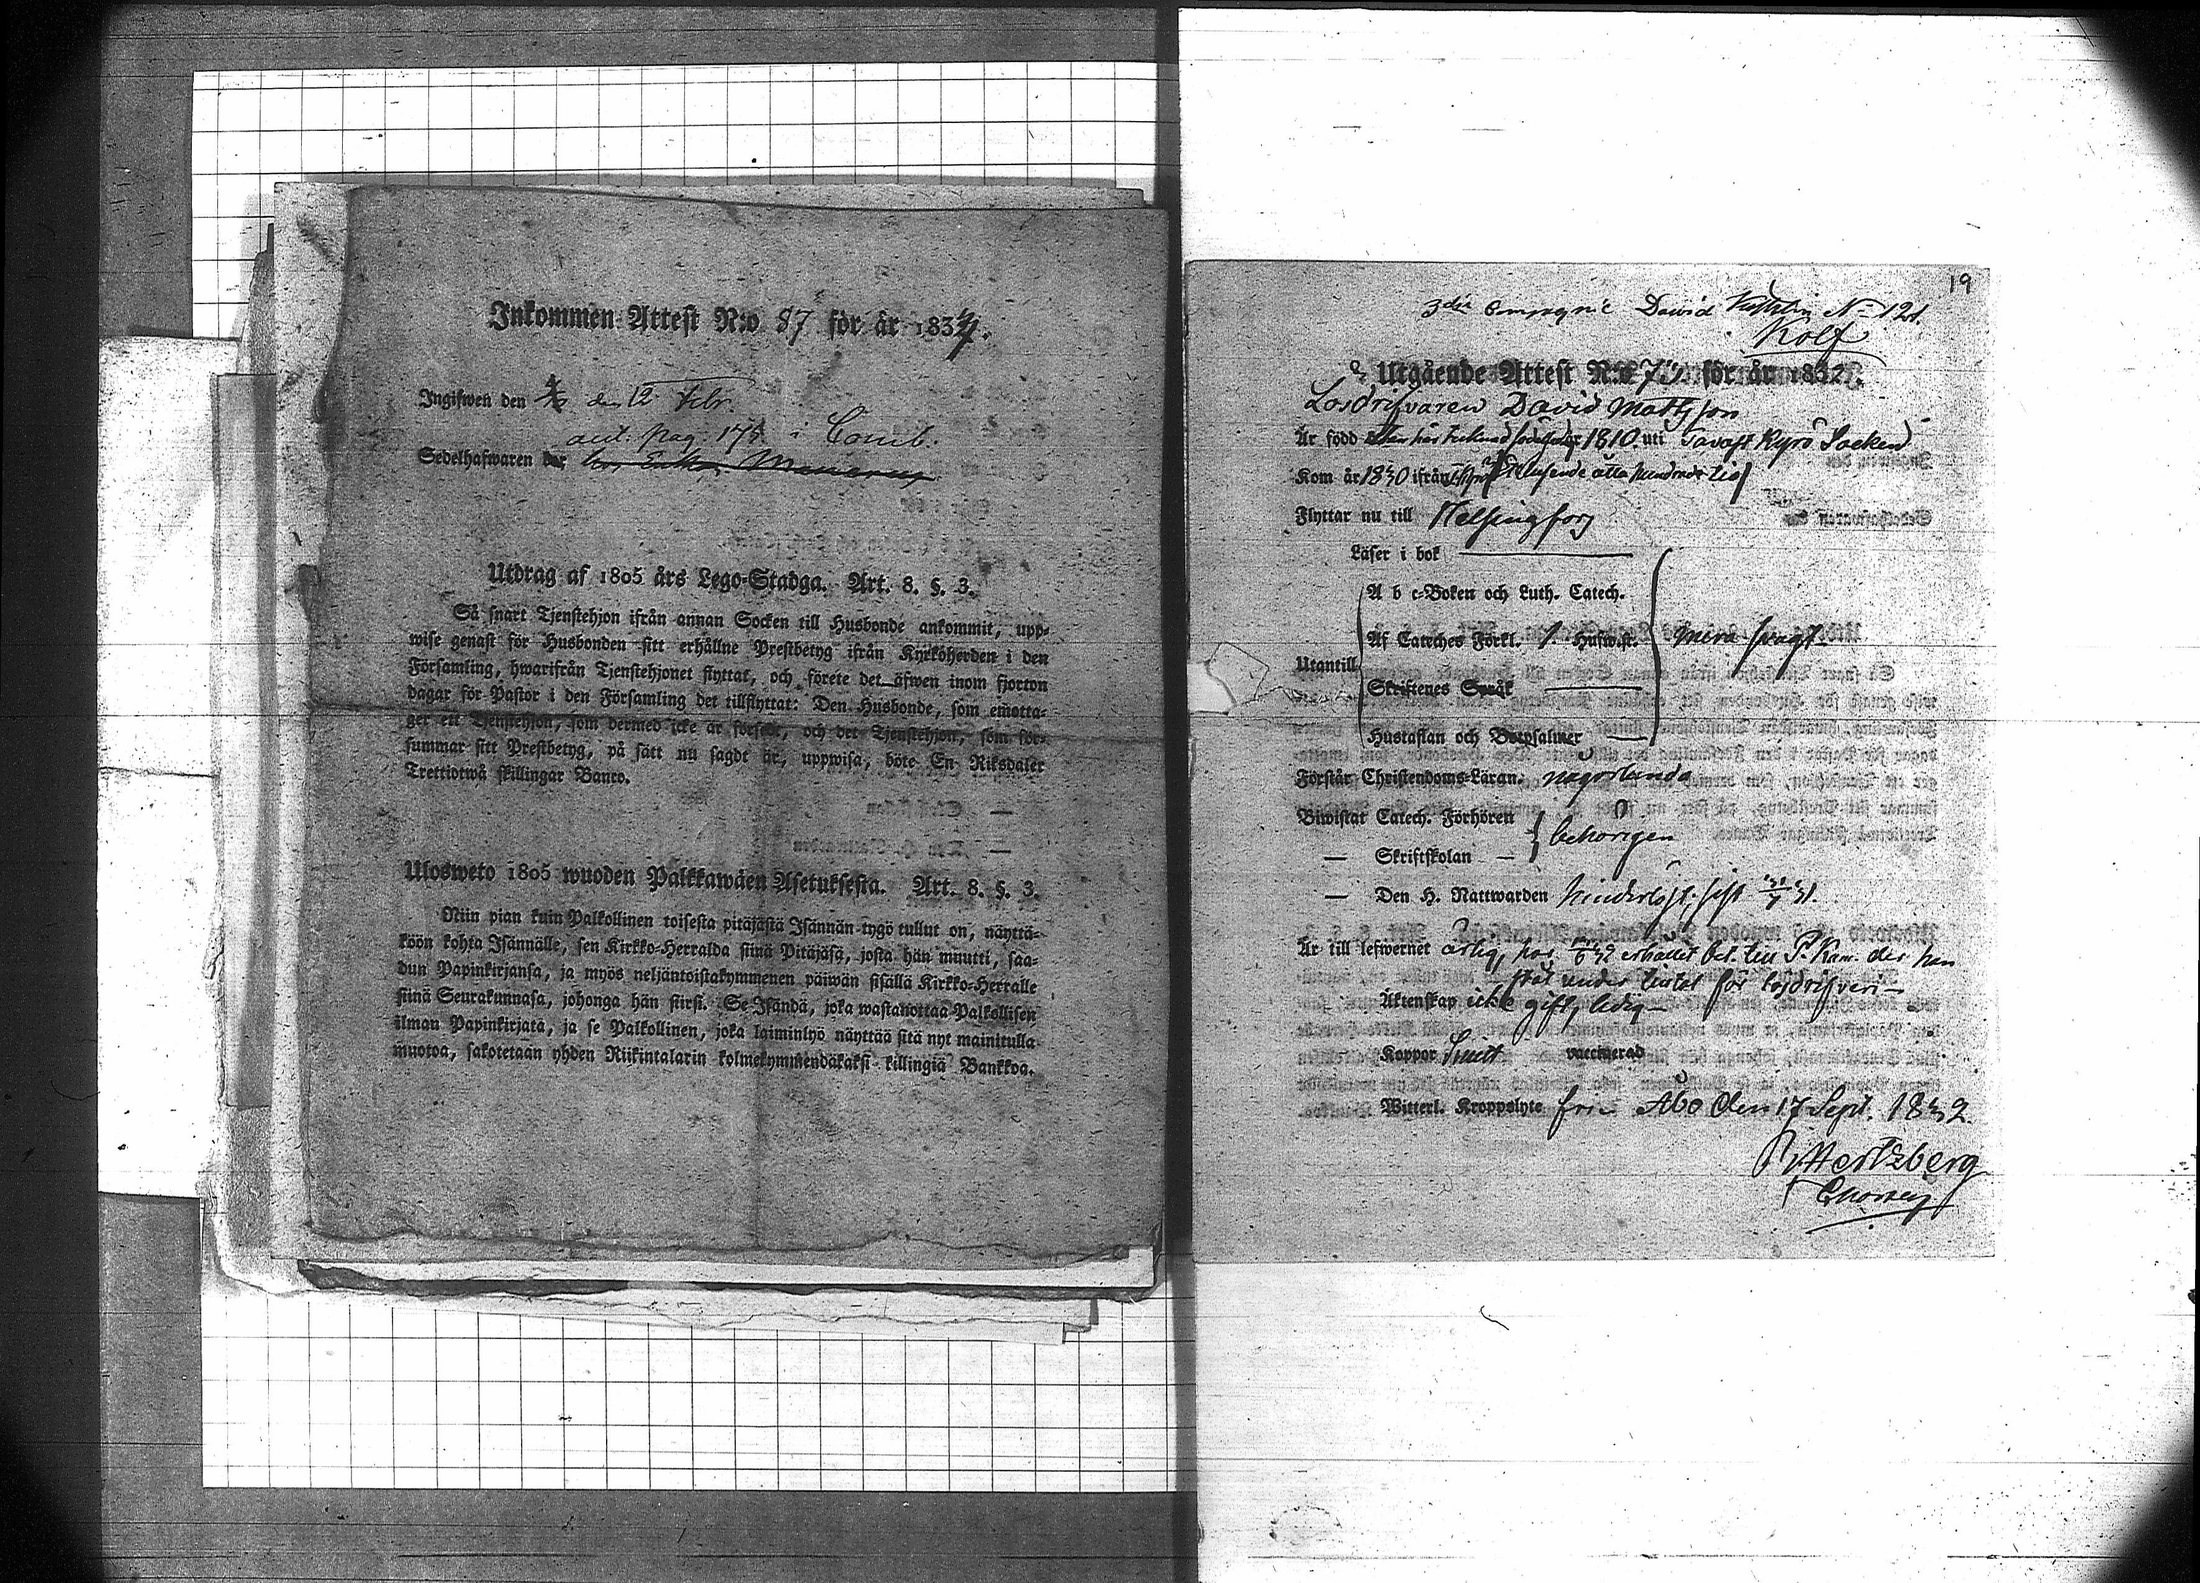 Inkommen Attest N:o 87 för år 183
Ingifwen den den 12 Febr.
ant. pag: 175 i Comb.
Sedelhafwaren
Utdrag af 1805 års Lego-Stadga. Art. 8. §. 3.
Så snart Tjenstehjon ifrån annan Socken till Husbonde ankommit, upp-
wise genast för Husbonden sitt erhållne Prestbetyg ifrån Kyrkoherden i den
Församling, hwarifrån Tjenstehjonet flyttat, och förete det äfwen inom fjorton
dagar för Pastor i den Församling det tillflyttat: Den Husbonde, som emotta-
ger ett Tjenstehjon, som dermed icke är försedt, och det Tjenstehjon, som för-
summar sitt Prestbetyg, på sätt nu sagdt är, uppwisa, böte En Riksdaler
Trettiotwå skillingar Banco.
Ulosweto 1805 wuoden Palkkawäen Asetuksesta. Art. 8. §. 3.
Niin pian kuin Palkollinen toisesta pitäjästä Isännän tygö tullut on, näyttä-
köön kohta Isännälle, sen Kirkko-Herralda siinä Pitäjäsä, josta hän muutti, saa-
dun Papinkirjansa, ja myös neljäntoistakymmenen päiwän sisällä Kirkko-Herralle
siinä Seurakunnasa, johonga hän siirsi. Se Isändä, joka wastanottaa Palkollisen
ilman Papinkirjata, ja se Palkollinen, joka laiminlyö näyttää sitä nyt mainitulla
muotoa, sakotetaan yhden Riikintalarin kolmekymmendäkaksi killingiä Bankkoa.
19
3die Compagnie David N:o 121.
Kolf
Utgående Attest N:o 73 för år 1832.
Losdrifvaren David Mattsson
Är född 1810 uti Tavast Kyrö Socken
Kom år 1830 ifrån tusende åtta hundrade tio
Flyttar nu till Helsingfors
Läser i bok
A b c-Boken och Luth. Catech.
Af Cateches Förkl. 1. Hufw.st.
Utantill
mera svagt
Skriftenes Språk
Hustaflan och Botpsalmer
Förstår Christendoms-Läran. någorlunda
Biwistat Catech. Förhören
behörigen
— Skriftskolan —
— Den H. Nattwarden hinderlöst, sist
Är till lefwernet ärlig, har erhållet bet. till P. Kam. der han
stått under tiltal för lösdrifveri —
Äktenskap icke gift, ledig —
Koppor vaccinerad
Witterl. Kroppslyte fri. Åbo den 17 Sept. 1832.
Hertzberg